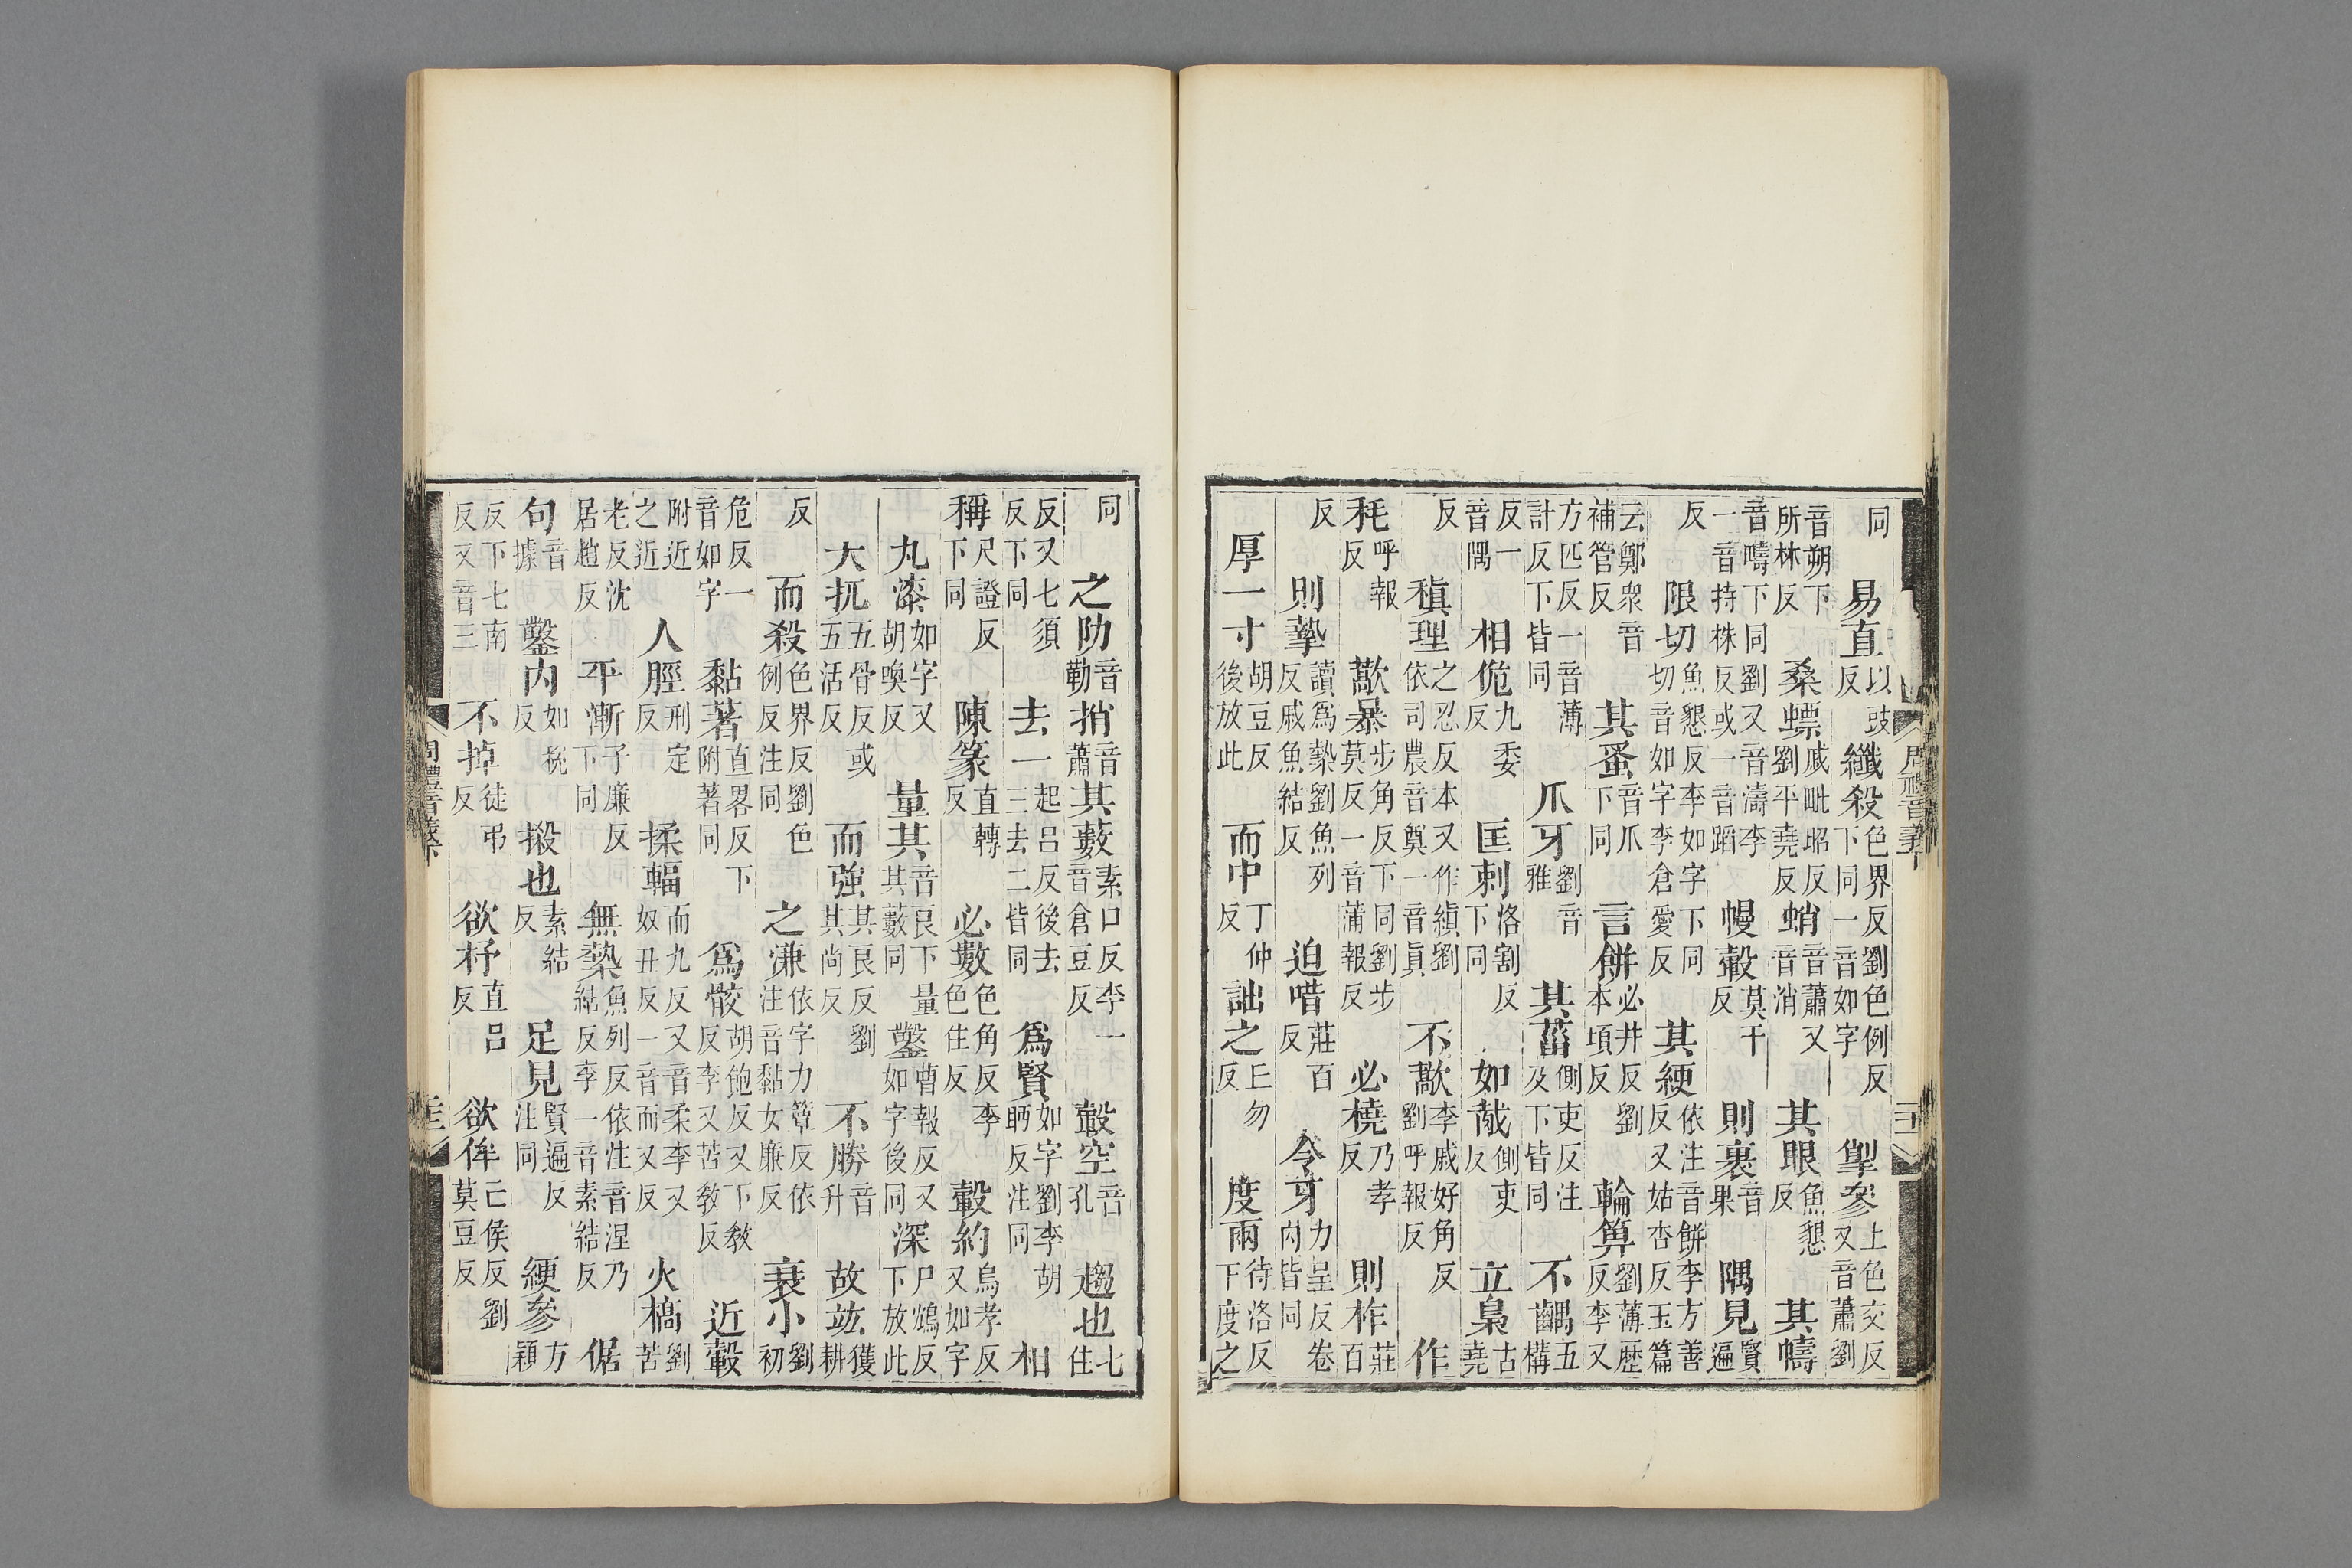 同易直以豉反纖殺色界反劉色例反下同一音如字掣參上色交反又音蕭劉
音朔下所林反桑螵戚毗昭反劉平堯反蛸音蕭又音消其眼魚懇反其幬
音疇下同劉又音濤李一音持株反或一音蹈幔轂莫干反則裹音果隅見賢遍
反限切魚懇反李如字下同切音如字李倉愛反其綆依注音餅李方善反又姑杏反玉篇
云鄭衆音補管反其蚤音爪下同言餠必井反劉本頃反輪箄劉薄歷反李又
方匹反一音薄計反下皆同爪牙劉音雅其菑側吏反注及下皆同不齵五構
反一音隅相佹九委反匡刺洛割反下同如胾側吏反立梟古堯
反稹理之忍反本又作縝劉依司農音奠一音眞不藃李戚好角反劉呼報反作
秏呼報反藃暴步角反下同劉步莫反一音蒲報反必橈乃孝反則柞莊百
反則摯讀爲槷劉魚列反戚魚結反迫唶莊百反令牙力呈反卷內皆同
厚一寸胡豆反後放此而中丁仲反詘之丘勿反度兩待洛反下度之
周禮音義下
同之阞音勒捎音蕭其藪素口反李一音倉豆反轂空音孔趨也七住
反又七須反下同去一起呂反後去三去二皆同爲賢如字劉李胡眄反注同相
稱尺證反下同陳篆直轉反必數色角反李色住反轂約烏孝反又如字
丸漆如字又胡喚反量其音良下量其藪同鑿曹報反又如字後同深尸鴆反下放此
大扤五骨反或五活反而強其良反劉其尚反不勝音升故竑獲耕
反而殺色界反劉色例反注同之溓依字力簟反依注音黏女廉反衰小劉初
危反一音如字黏著直畧反下附著同爲骹胡飽反又下敎反李又苦敎反近轂
附近之近人脛刑定反揉輻而九反又音柔李又奴丑反一音而又反火槁劉苦
老反沈居趙反平漸子廉反下同無槷魚列反依注音涅乃結反李一音素結反倨
句音據鑿內如梲反摋也素結反足見賢遍反注同綆參方穎
反下七南反又音三不掉徒弔反欲杼直呂反欲侔亡侯反劉莫豆反
周禮音義下